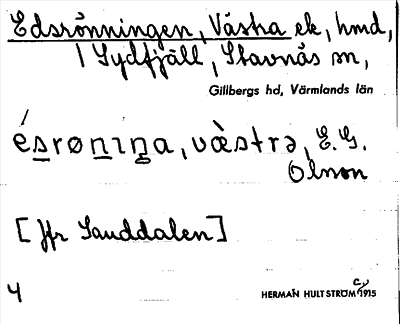 Edsrönningen, Västra ek, hmd,
/ Sydfjäll, Stavnäs sn,
Gillbergs hd, Värmlands län
ésrønıŋa, væ̀strə, E. G.
Olsson
[Jfr Sanddalen]
4
HERMAN HULTSTRÖM 1915